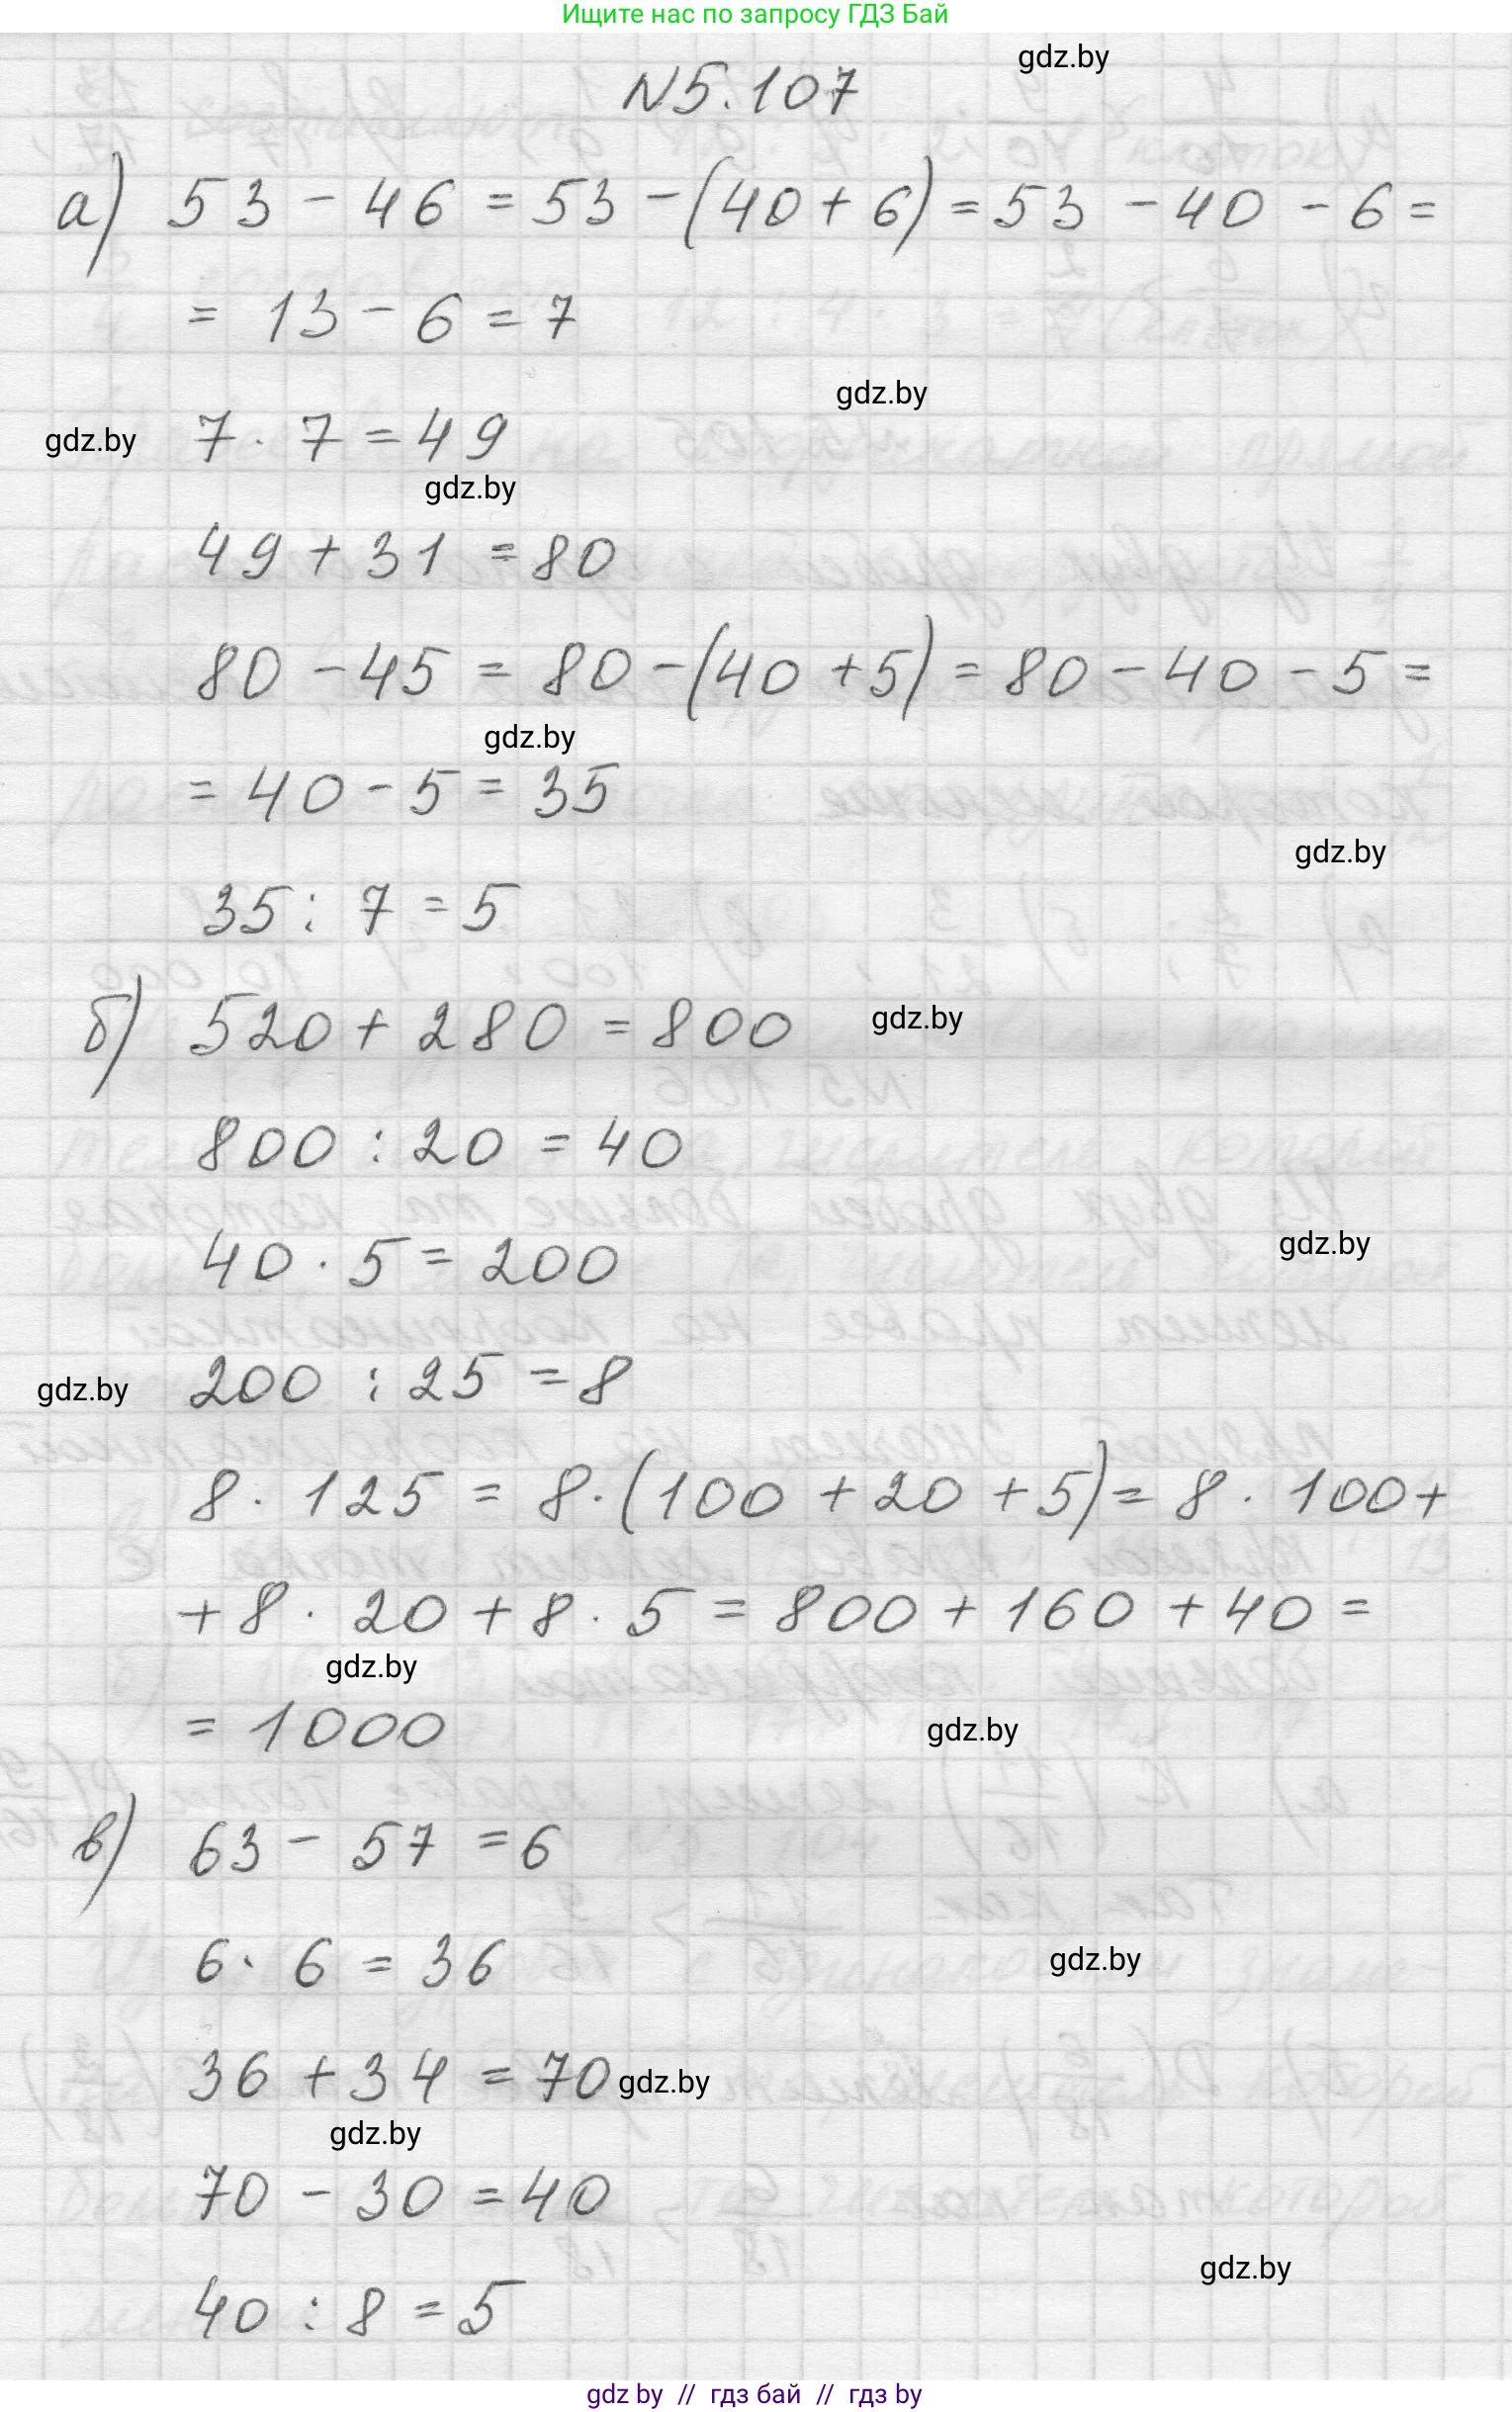 Ищите нас по запросу ГДЗ Бай
gdz.by
N5.107
а) 53 - 46 = 53 - (40 + 6) = 53 - 40 - 6 =
= 13 - 6 = 7
gdz.by
gdz.by 7 · 7 = 49
gdz.by
49 + 31 = 80
80 - 45 = 80 - (40 + 5) = 80 - 40 - 5 =
gdz.by
= 40 - 5 = 35
gdz.by
35 : 7 = 5
б) 520 + 280 = 800 gdz.by
800 : 20 = 40
40 · 5 = 200 gdz.by
gdz.by 200 : 25 = 8
8 · 125 = 8 · (100 + 20 + 5) = 8 · 100 +
+ 8 · 20 + 8 · 5 = 800 + 160 + 40 =
gdz.by
= 1000 gdz.by
в) 63 - 57 = 6
6 · 6 = 36 gdz.by
36 + 34 = 70 gdz.by
gdz.by
70 - 30 = 40
gdz.by
40 : 8 = 5
gdz by // гдз бай // гдз by